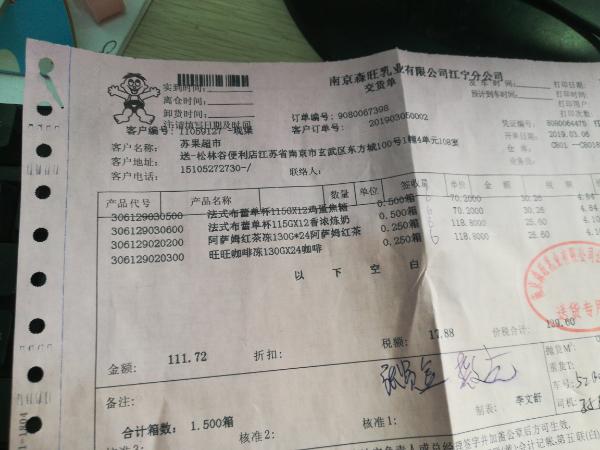 南京森旺乳业有限公司江宁分公司
交货单
实到时间:
离仓时间:
卸货时间:
注:请填写日期及时间
发车时间:
预计到车时间:
打印日期
打印时间
打印用户
订单编号: 9080067398
客户订单号: 201903050002
凭证编号: 80800644
开单日期: 2019.03.06
仓 库: CB01
客户编号: 11059127
客户名称: 苏果超市
客户地址: 送-松林谷便利店江苏省南京市玄武区东方城100号1幢4单元108室
客户电话: 15105272730-/
联络人:
产品代号 产品名称 数量 单位 签收量 单价 金额 税额
306129030500 法式布蕾单杯115GX12鸡蛋焦糖 0.500箱 6 70.2000 30.26 4.84
306129030600 法式布蕾单杯115GX12香浓炼奶 0.500箱 6 70.2000 30.26 4.84
306129020200 阿萨姆红茶冻130G*24阿萨姆红茶 0.250箱 6 118.8000 25.60 4.10
306129020300 旺旺咖啡冻130GX24咖啡 0.250箱 6 118.8000 25.60 4.10
以 下 空 白
金额: 111.72 折扣: 税额: 17.88 价税合计:
送货专用
备注:
制表: 李文轩
抛货M³:
重货T:
车号:
司机:
合计箱数: 1.500箱 核准2: 核准1: